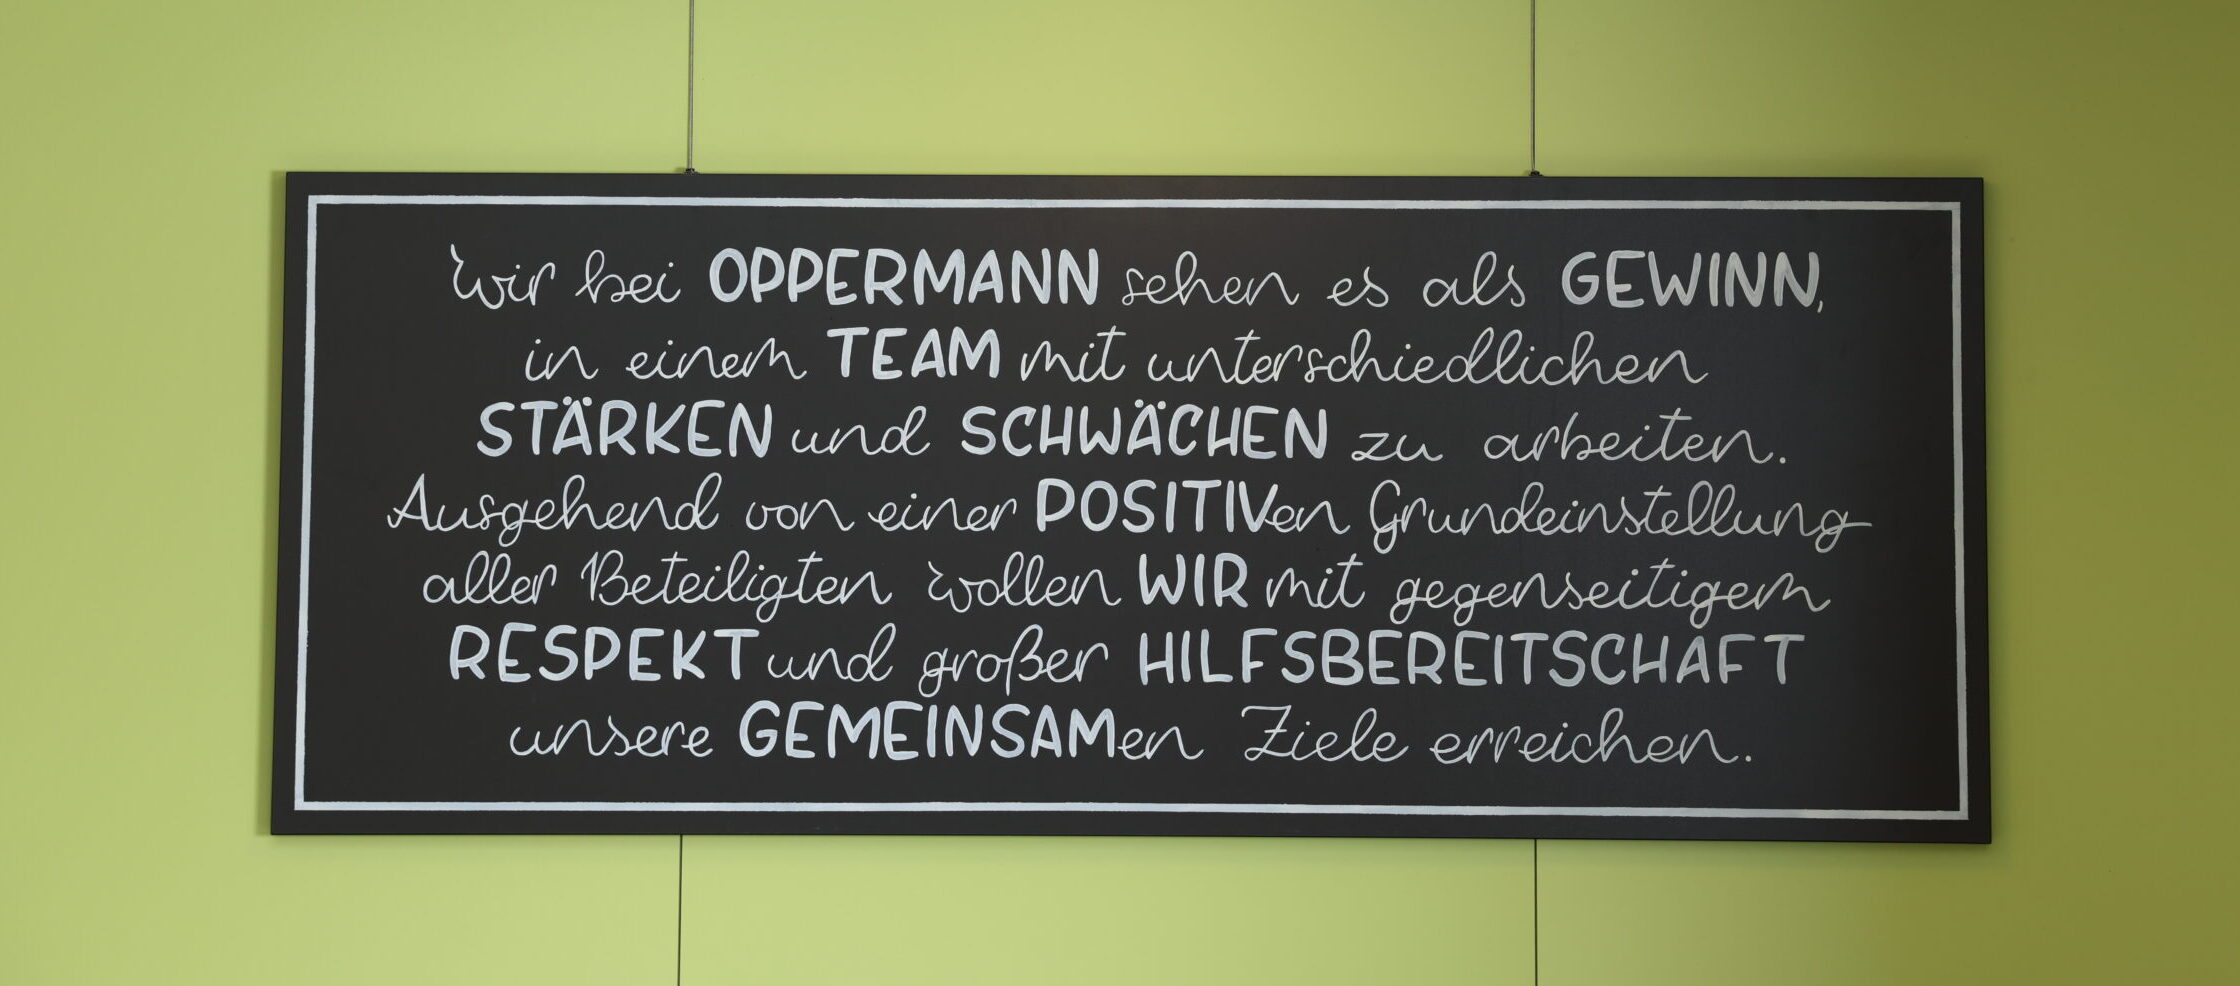 Wir bei OPPERMANN sehen es als GEWINN,
in einem TEAM mit unterschiedlichen
STÄRKEN und SCHWÄCHEN zu arbeiten.
Ausgehend von einer POSITIVen Grundeinstellung
aller Beteiligten wollen WIR mit gegenseitigem
RESPEKT und großer HILFSBEREITSCHAFT
unsere GEMEINSAMen Ziele erreichen.